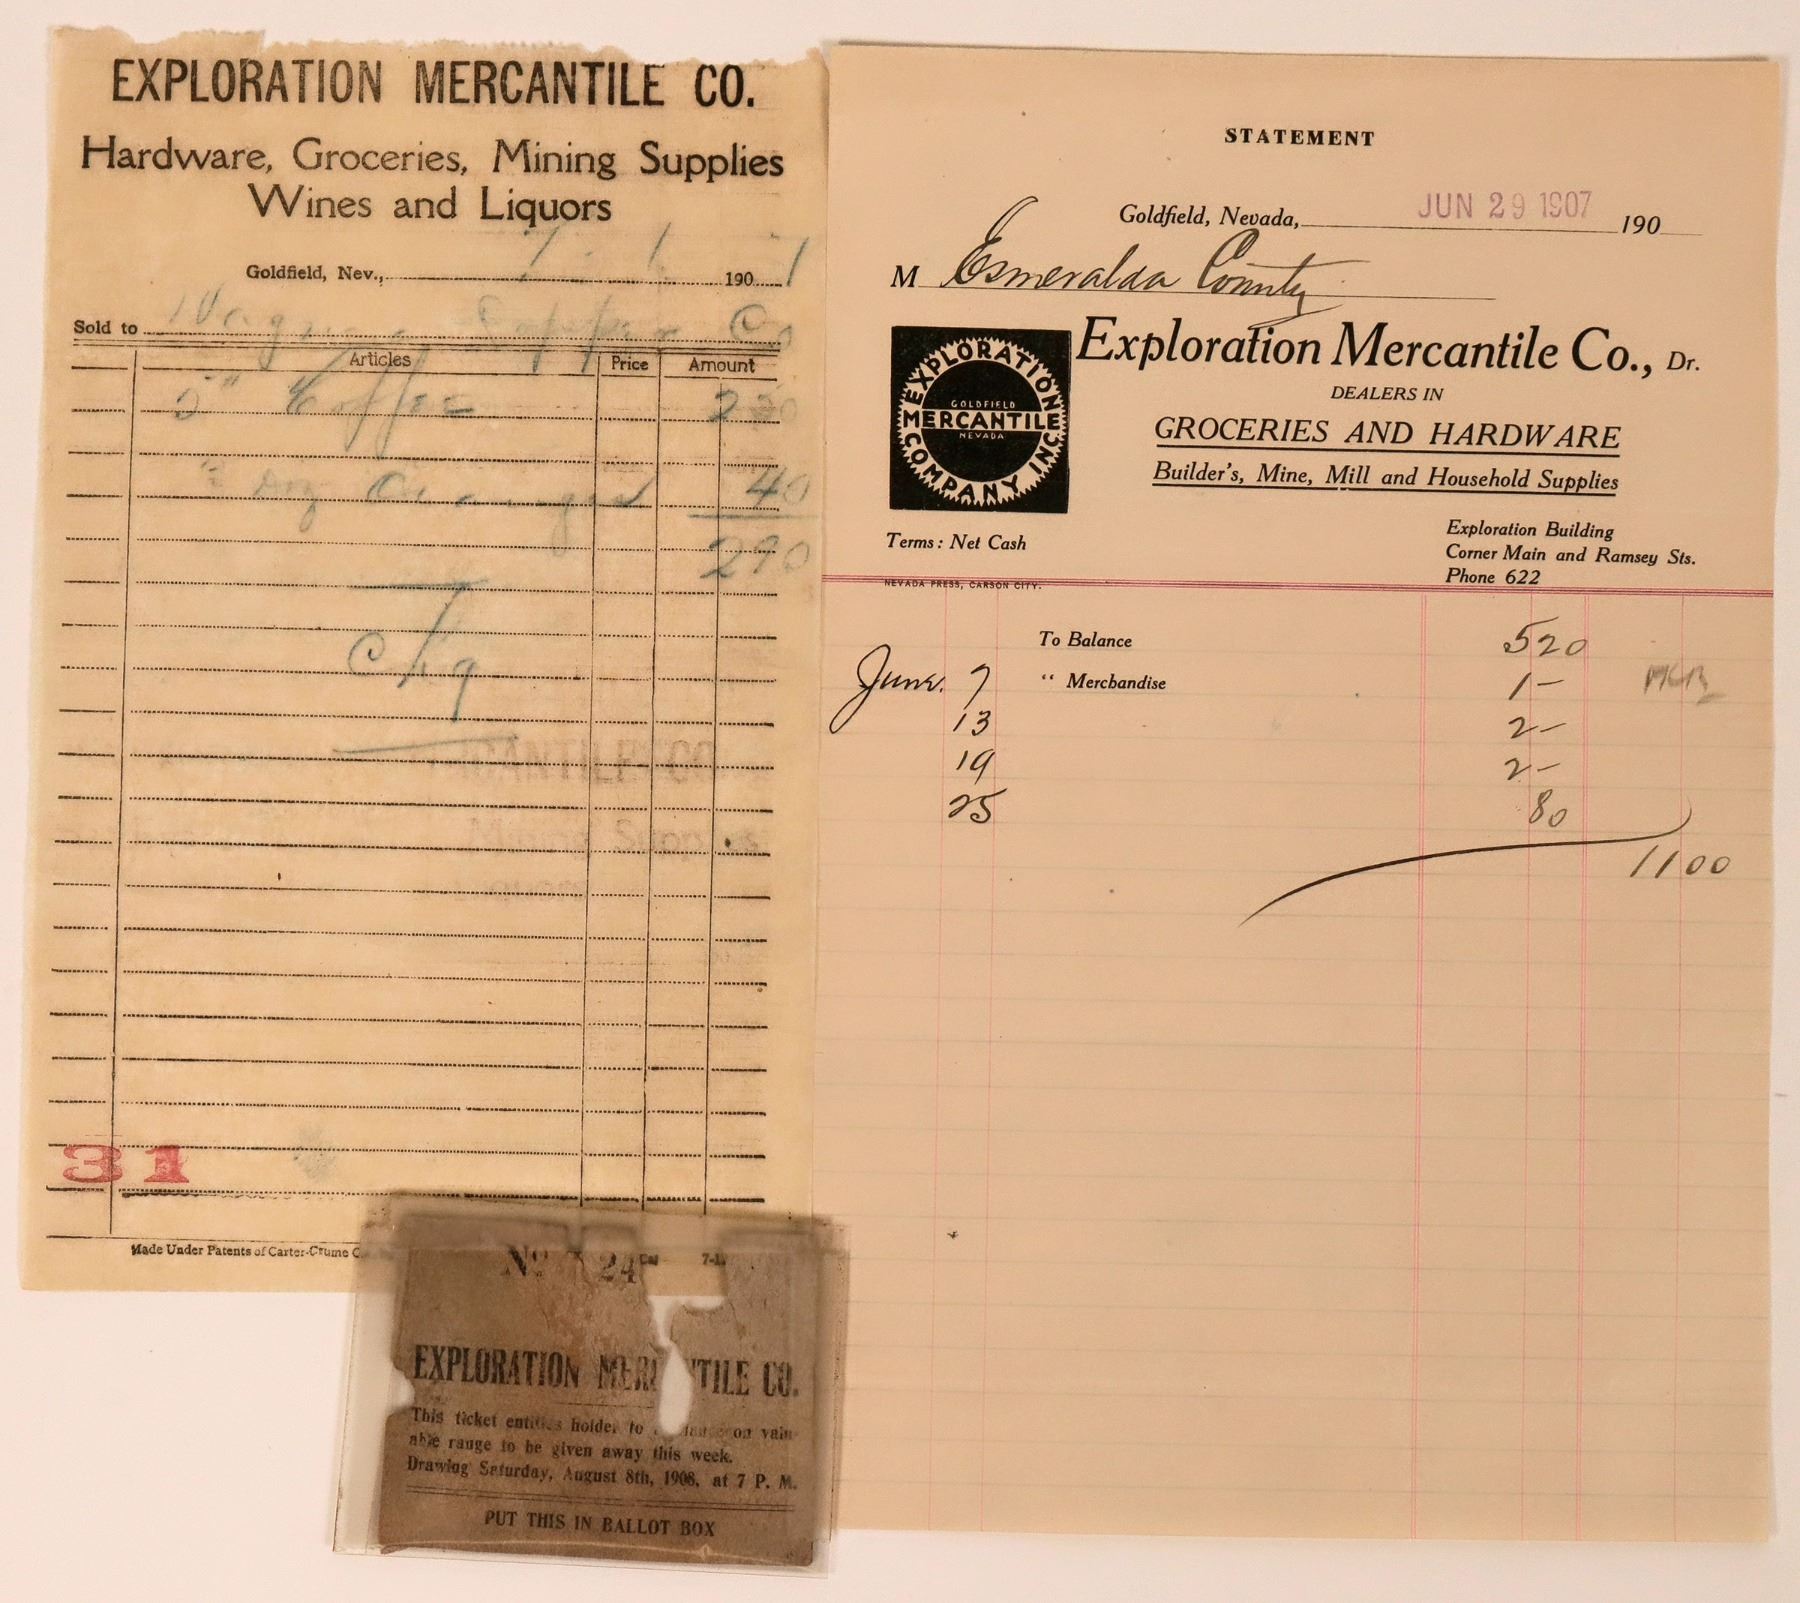 EXPLORATION MERCANTILE CO.
Hardware, Groceries, Mining Supplies
Wines and Liquors
Goldfield, Nev., 190
Sold to Co
Articles Price Amount
5" Coffee
doz Oranges 40
290
chg
31
Made Under Patents of Carter-Crume
No 24
EXPLORATION MERCANTILE CO.
This ticket entitles holder to on valu-
able range to be given away this week.
Drawing Saturday, August 8th, 1908, at 7 P. M.
PUT THIS IN BALLOT BOX
STATEMENT
Goldfield, Nevada, JUN 29 1907 190
M Esmeralda County
EXPLORATION MERCANTILE COMPANY INC
GOLDFIELD
NEVADA
Exploration Mercantile Co., Dr.
DEALERS IN
GROCERIES AND HARDWARE
Builder's, Mine, Mill and Household Supplies
Terms: Net Cash
Exploration Building
Corner Main and Ramsey Sts.
Phone 622
NEVADA PRESS, CARSON CITY.
To Balance 520
June 7 " Merchandise 1–
13 2–
19 2–
25 80
1100